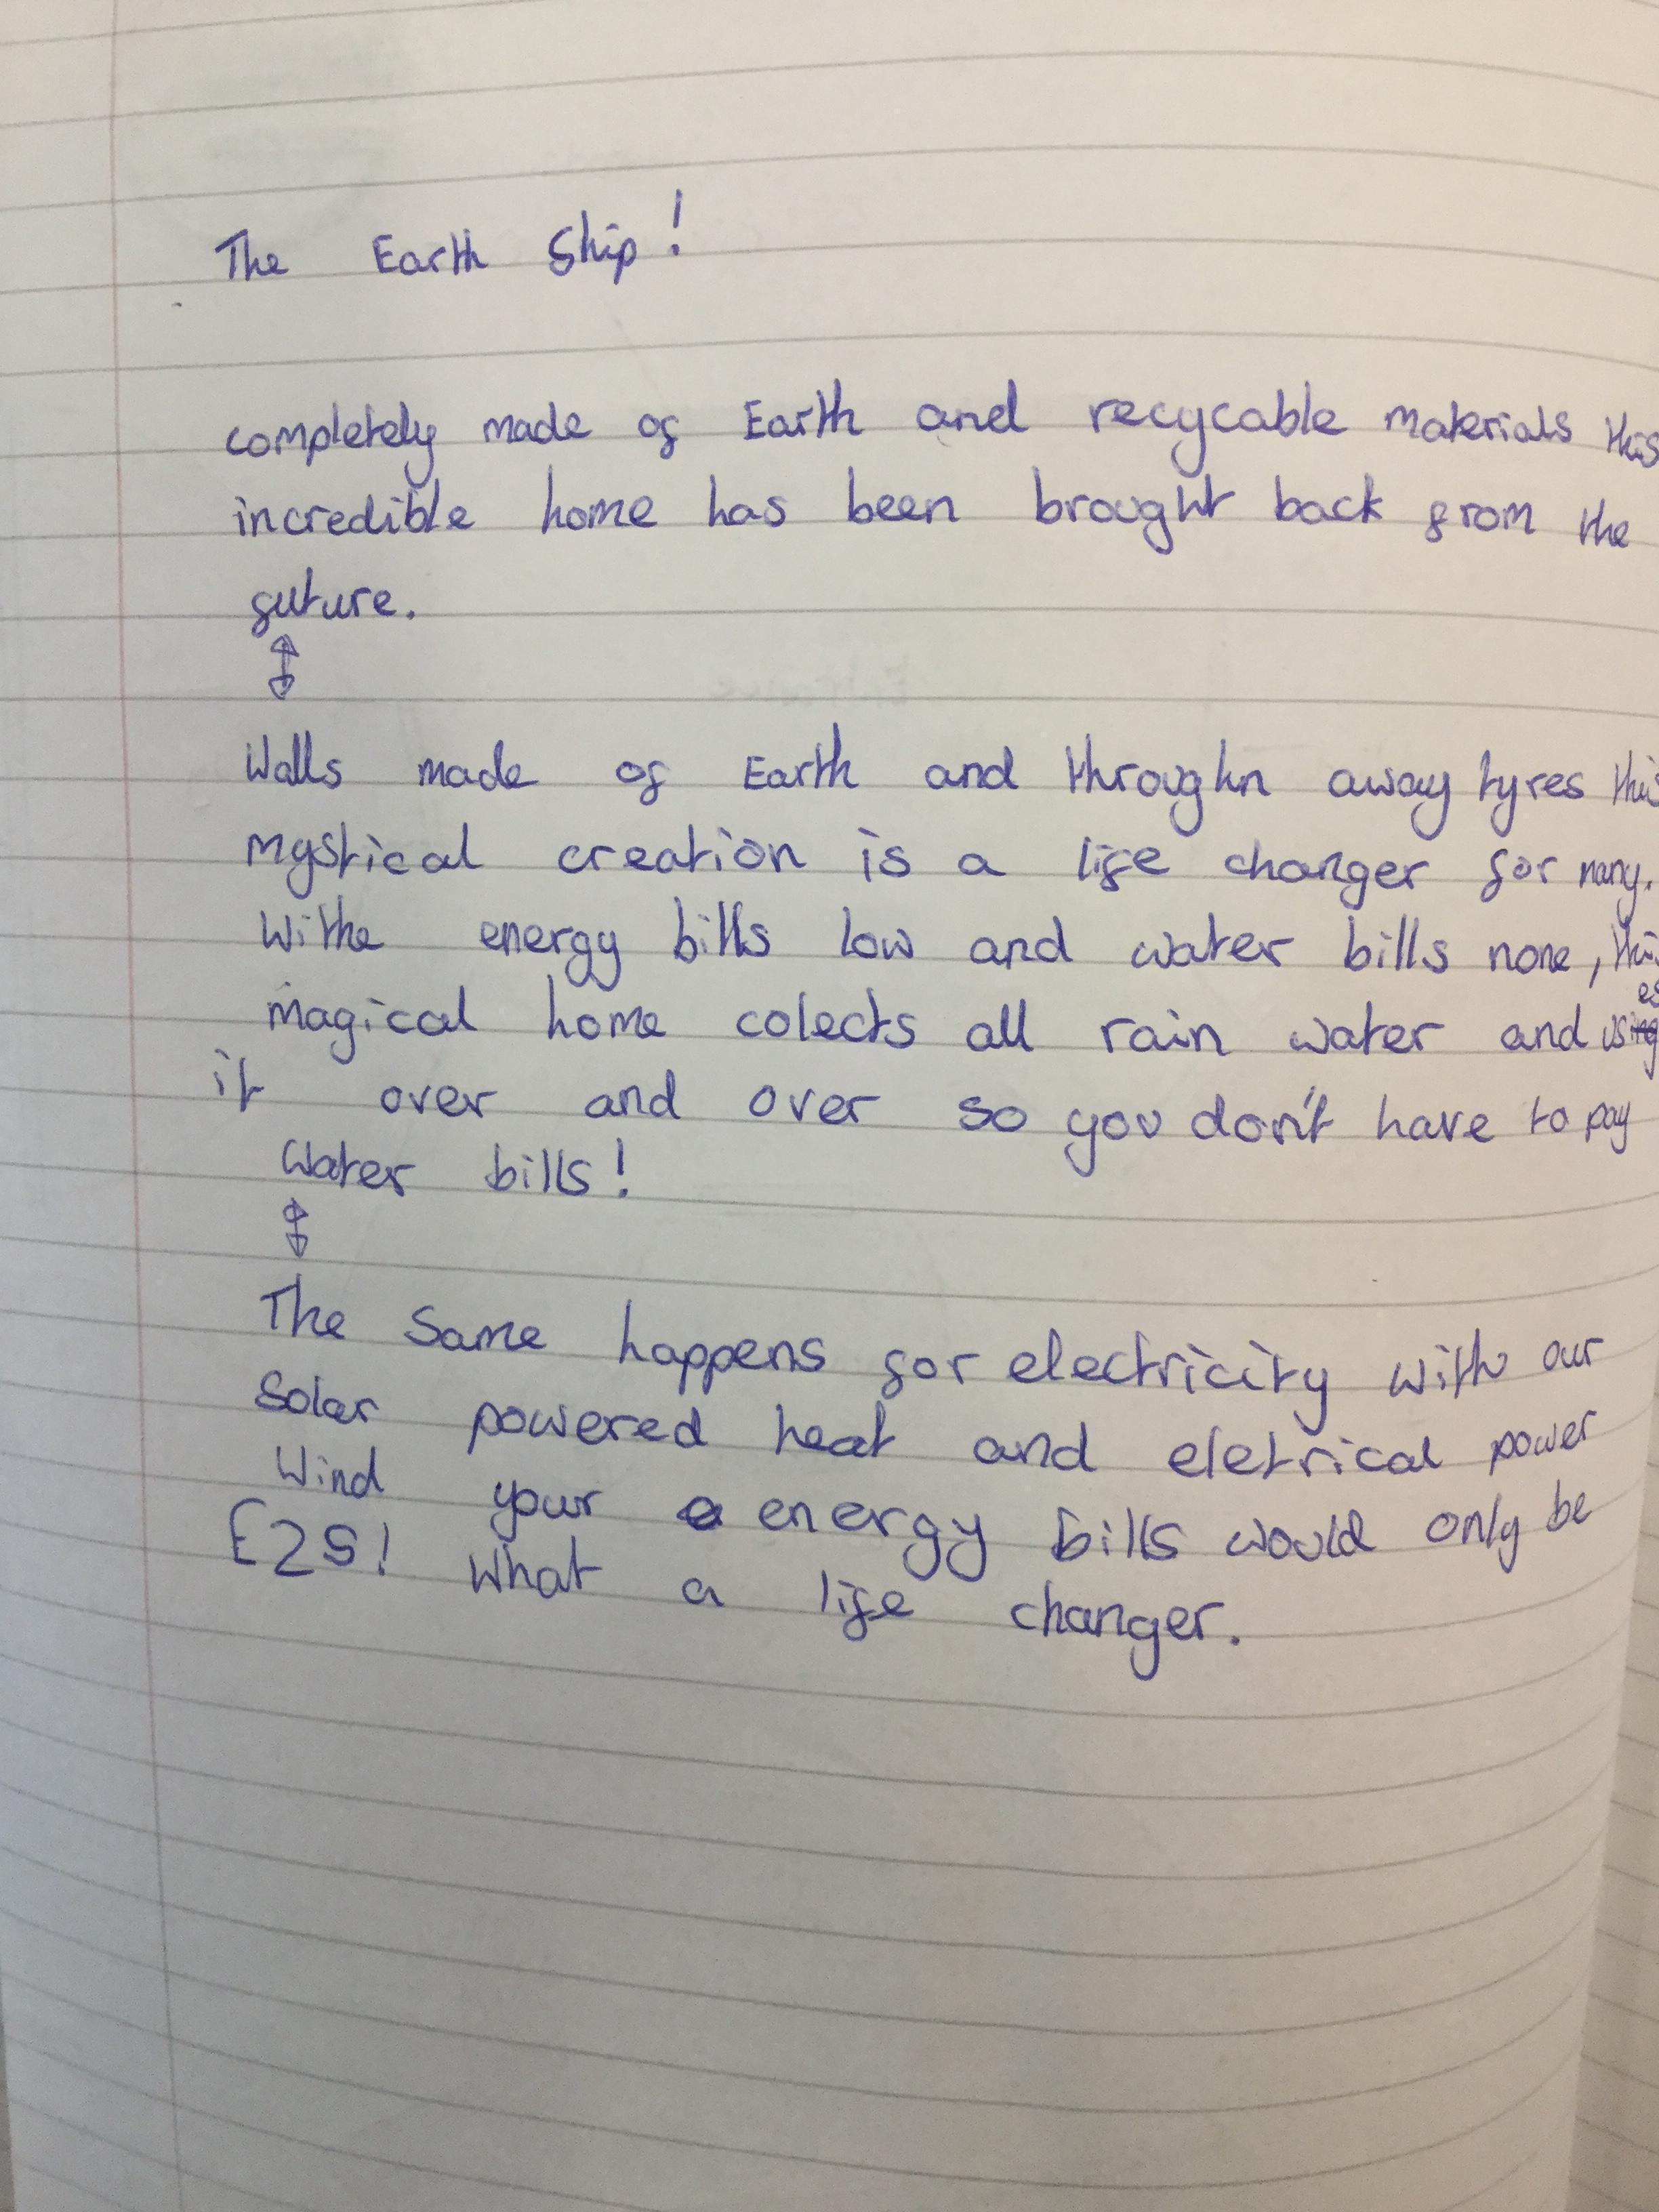 The Earth Ship!
completely made of Earth and recycable materials this
incredible home has been brought back from the
future.
Walls made of Earth and throughn away tyres this
mystical creation is a life changer for many.
Withe energy bills low and water bills none, this
magical home colects all rain water and uses
it over and over so you don't have to pay
water bills!
The Same happens for electricity with our
Solar powered heat and eletrical power
Wind your energy bills would only be
£25! What a life changer.